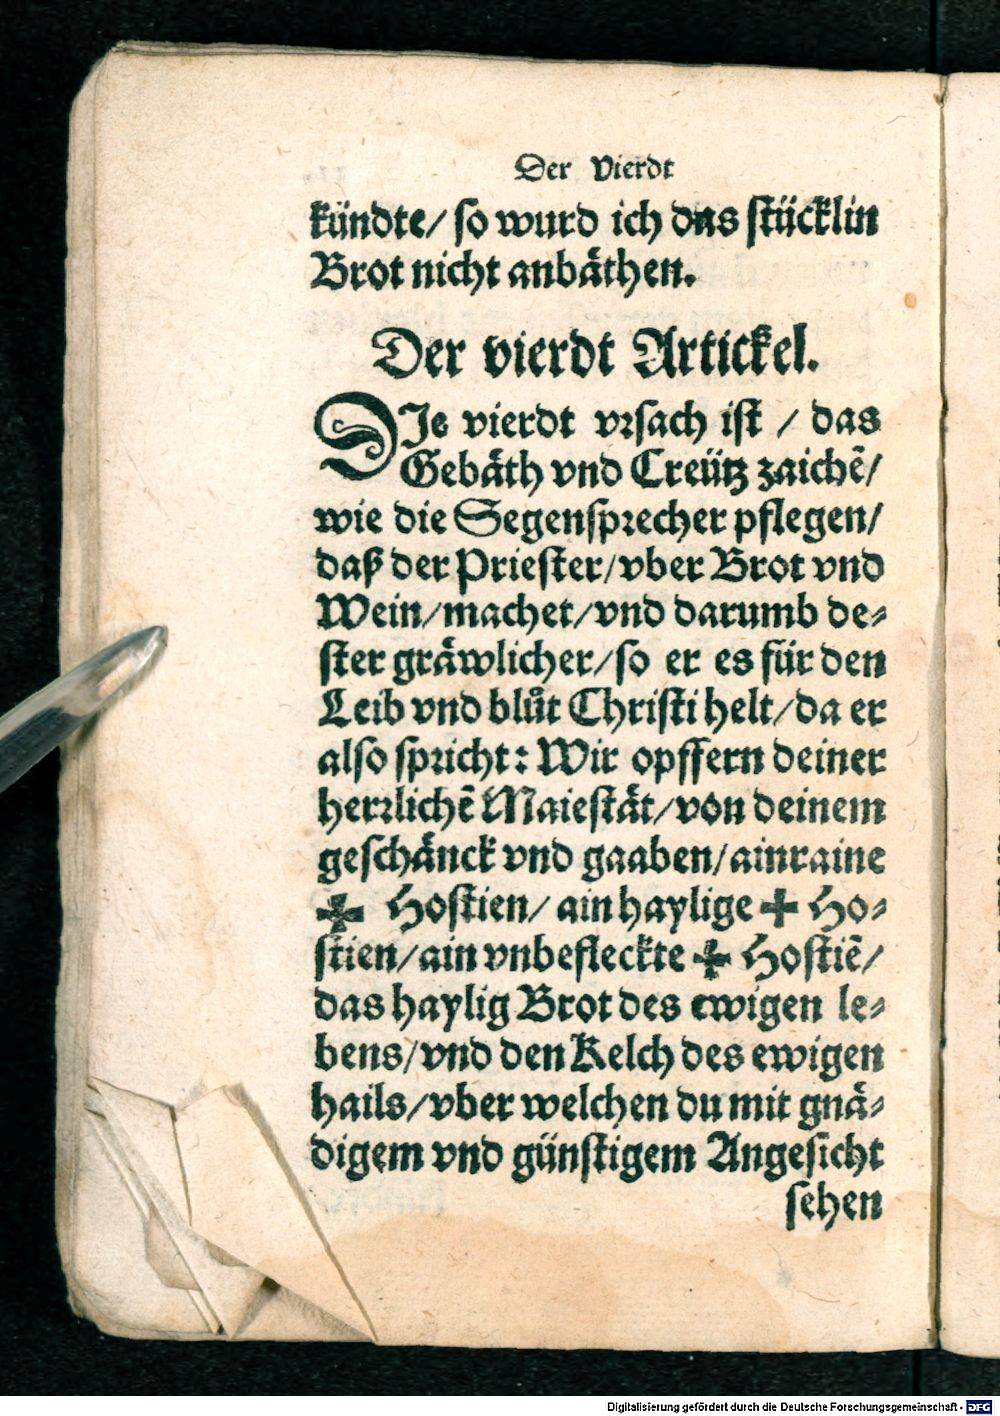 Der Vierdt
kündte/ so wurd ich das stücklin
Brot nicht anbäthen.
Der vierdt Artickel.
DIe vierdt vrsach ist / das
Gebäth vnd Creütz zaichẽ/
wie die Segensprecher pflegen/
daß der Priester/vber Brot vnd
Wein/machet/vnd darumb de-
ster gräwlicher/so er es für den
Leib vnd blůt Christi helt/da er
also spricht: Wir opffern deiner
herrlichẽ Maiestät/von deinem
geschänck vnd gaaben/ainraine
✠ Hostien/ ain haylige ✠ Ho-
stien/ain vnbefleckte ✠ Hostiẽ/
das haylig Brot des ewigen le-
bens/vnd den Kelch des ewigen
hails/vber welchen du mit gnä-
digem vnd günstigem Angesicht
sehen
Digitalisierung gefördert durch die Deutsche Forschungsgemeinschaft - DFG